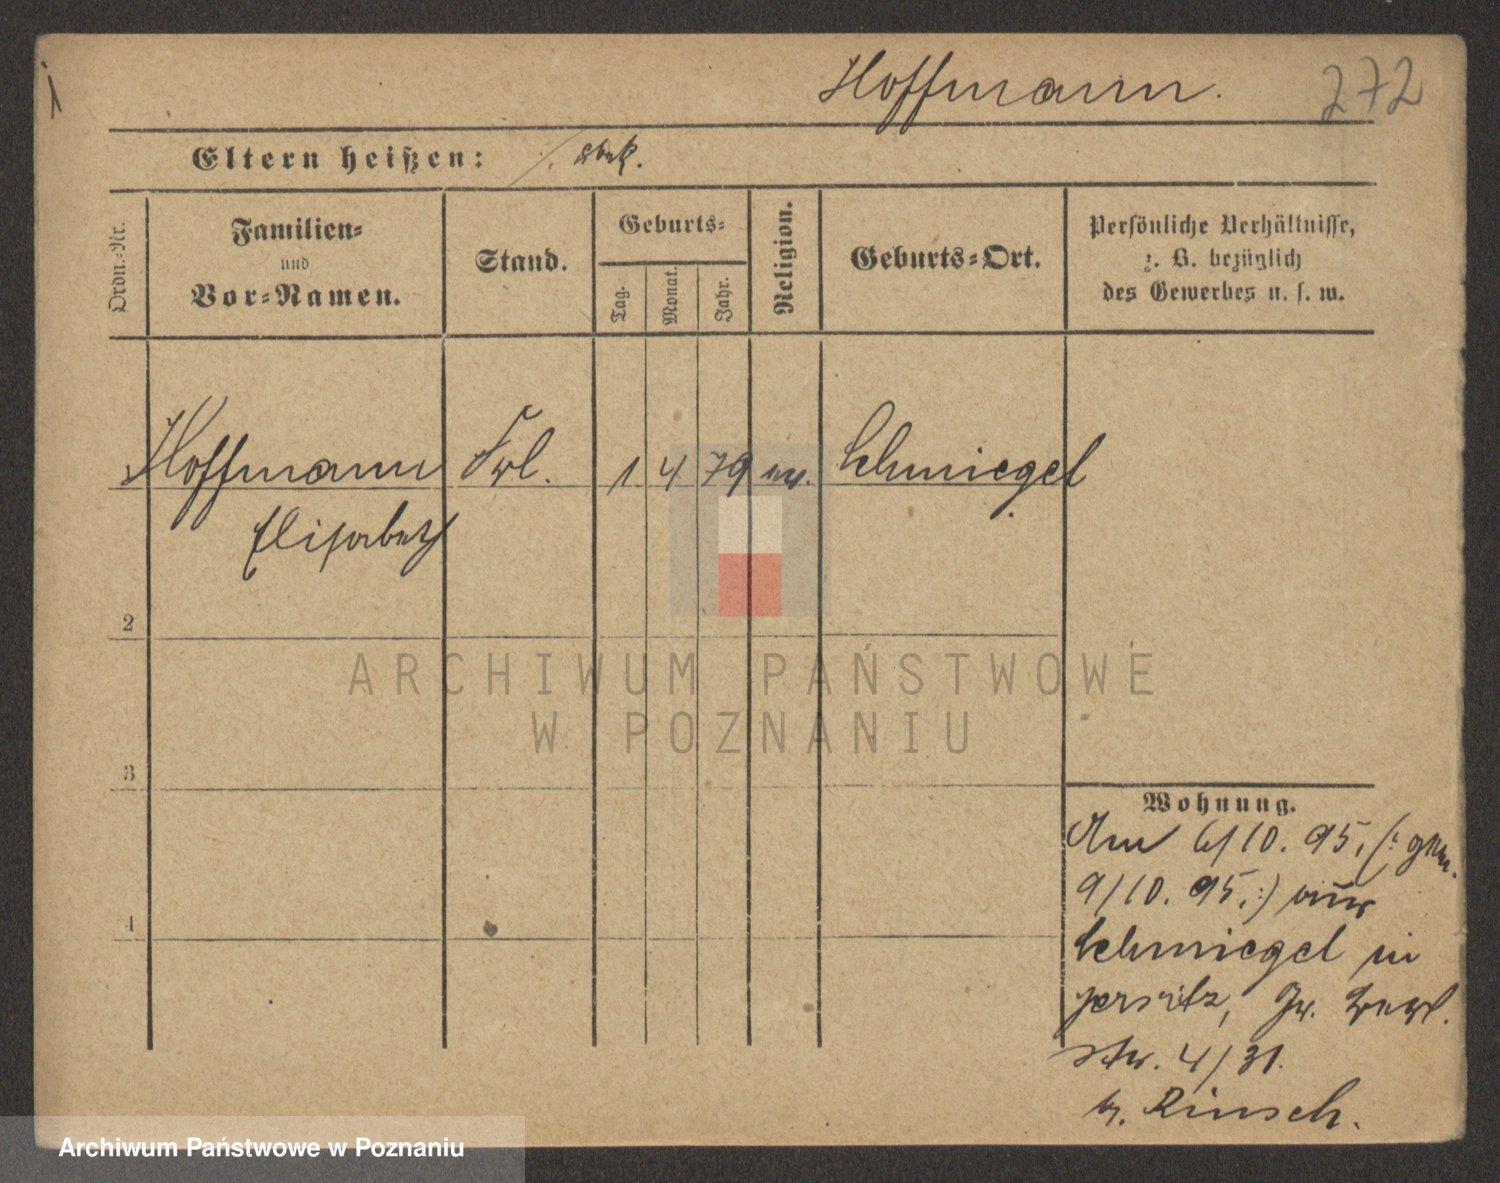 Hoffmann. 272
Eltern heißen:
Ordn.-Nr.
Familien-
und
Vor-Namen.
Stand.
Geburts-
Tag.
Monat.
Jahr.
Religion.
Geburts-Ort.
Persönliche Verhältnisse,
z. B. bezüglich
des Gewerbes u. s. w.
Hoffmann Frl. 1 4 79 ev. Schmiegel
Elisabeth
2
3
4
Wohnung.
Am 6/10. 95. (: gem.
9/10. 95. :) aus
Schmiegel in
Jersitz, Gr.
str. 4/31.
b. Rinsch.
ARCHIWUM PAŃSTWOWE
W POZNANIU
Archiwum Państwowe w Poznaniu